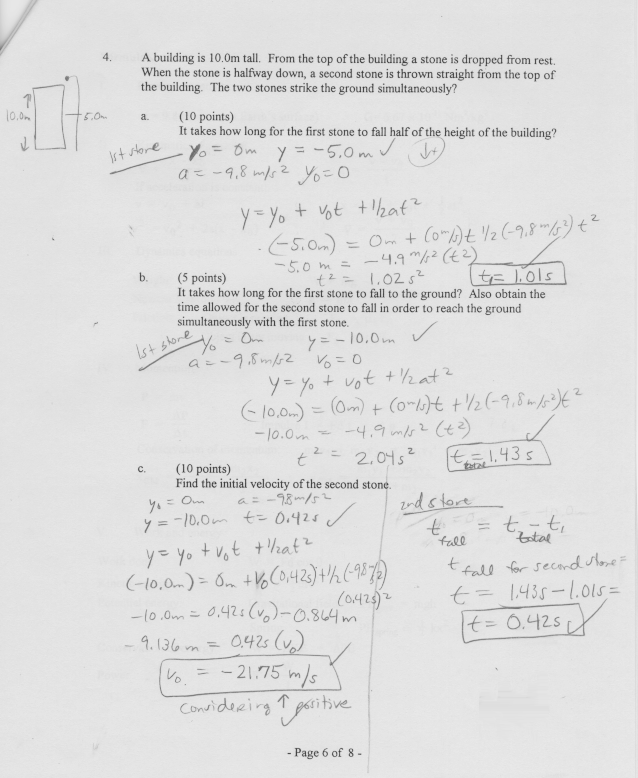 4. A building is 10.0m tall. From the top of the building a stone is dropped from rest.
When the stone is halfway down, a second stone is thrown straight from the top of
the building. The two stones strike the ground simultaneously?
10.0m
5.0m
a. (10 points)
It takes how long for the first stone to fall half of the height of the building?
1st stone
y₀ = 0m y = -5.0m ✓ ↓+
a = -9,8 m/s² y₀=0
y = y₀ + v₀t + ½at²
(-5.0m) = 0m + (0m/s)t ½(-9,8m/s²)t²
-5.0 m = -4.9 m/s² (t²)
t² = 1.02 s² t₁= 1.01s
b. (5 points)
It takes how long for the first stone to fall to the ground? Also obtain the
time allowed for the second stone to fall in order to reach the ground
simultaneously with the first stone.
1st stone
y₀ = 0m y = -10.0m ✓
a = -9,8m/s2 v₀ = 0
y = y₀ + v₀t + ½at²
(-10,0m) = (0m) + (0m/s)t + ½(-9,8m/s²)t²
-10.0m = -4.9 m/s² (t²)
t² = 2.04s² t total = 1.43 s
c. (10 points)
Find the initial velocity of the second stone.
y₀ = 0m a = -98m/s²
y = -10,0m t = 0.42s ✓
y = y₀ + v₀t + ½at²
(-10,0m) = 0m + v₀(0,42s) + ½(-98 m/s²)
(0.42s)²
-10.0m = 0,42s (v₀) - 0.864m
-9.136m = 0.42s (v₀)
v₀ = -21.75 m/s
considering ↑ positive
2nd stone
t fall = t total - t₁
t fall for second stone =
t = 1.43s - 1.01s =
t = 0.42s ✓
- Page 6 of 8 -